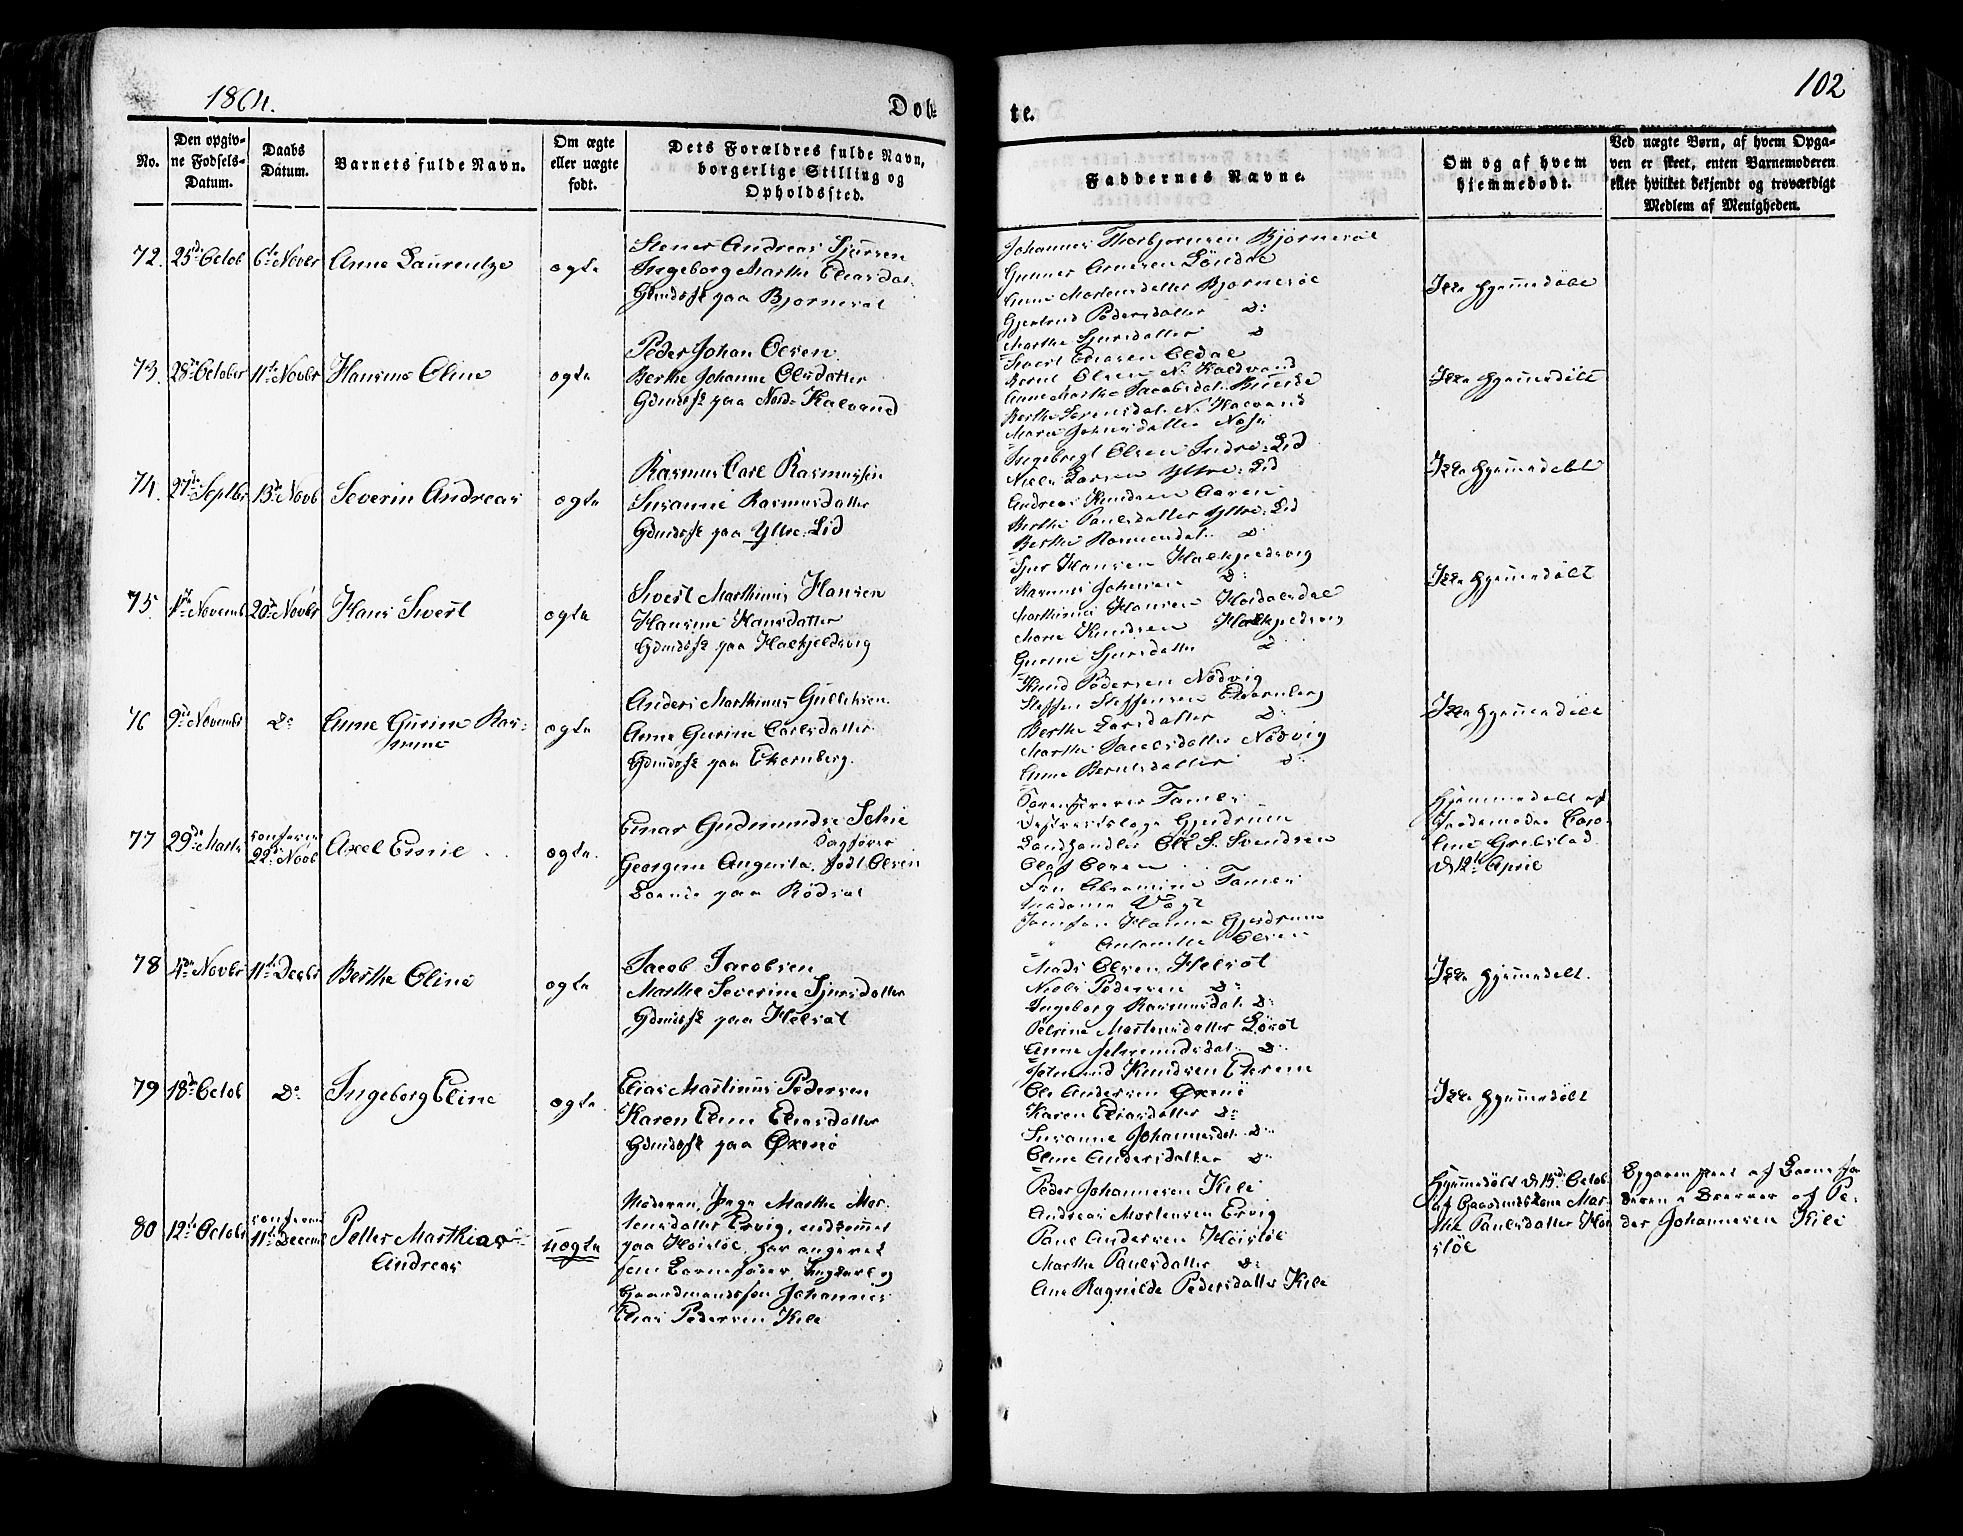 1864.
Døb-
te.
102
No.
Den opgiv-
ne Fødsels-
Datum.
Daabs
Datum.
Barnets fulde Navn.
Om ægte
eller uægte
født.
Dets Forældres fulde Navn,
borgerlige Stilling og
Opholdssted.
Faddernes Navne.
Om og af hvem
hjemmedøbt.
Ved uægte Børn, af hvem Opga-
ven er skeet, enten Barnemoderen
eller hvilket bekjendt og troværdigt
Medlem af Menigheden.
72. 25de Octob 6te Novbr Anne Laurentze ægte
Stener Andreas Sjursen
Ingeborg Marthe Eliasdat.
Gdmdsfk paa Bjørnesøl
Johannes Thorbjørnsen Bjørnesøl
Gunner Arnesen
Anne Mortensdatter Bjørnesøl
Gjertrud Pedersdatter Do
Marthe Sjursdatter Do
Ikke hjemmedøbt
73. 28de October 11te Novbr Hansine Oline ægte
Peder Johan Olsen
Berthe Johanne Olsdatter
Gdmdsfk paa Nord-Kalvand
Sivert Eliasen
Bernt Olsen N. Kaldvand
Anne Marthe Jacobsdat.
Berthe Sørensdat. N. Kalvand
Maren Johnsdatter
Ikke hjemmedøbt
74. 27de Septbr 13de Novb Severin Andreas ægte
Rasmus Carl Rasmussen
Susanne Rasmusdatter
Gdmdsfk paa Yttre-Lid
Ingebrigt Olsen Indre-Lid
Niels Larsen Yttre-Lid
Andreas Knudsen Aaren
Berthe Paulsdatter Yttre-Lid
Berthe Rasmusdat. Do
Ikke hjemmedøbt
75. 1ste Novemb 20de Novbr Hans Sivert ægte
Sivert Marthinus Hansen
Hansine Hansdatter
Gdmdsfk paa Halkjeldsvig
Sjur Hansen Halkjeldsvig
Rasmus Johnsen Do
Marthinus Hansen
Marie Knudsen Halkjeldsvig
Gurine Sjursdatter Do
Ikke hjemmedøbt
76 9de Novembr Do Anne Gurine Ras-
mine
ægte
Anders Marthinus Gulliksen
Anne Gurine Carlsdatter
Gdmdsfk paa Ekornberg.
Knud Pedersen Nødvig
Steffen Steffensen Ekornberg
Berthe Larsdatter Do
Marthe Jacobsdatter Nødvig
Anne Berntsdatter Do
Ikke hjemmedøbt
77 29de Marts confirm
22de Novb Axel Emil ægte.
Einar Gudmundse Schie
Sagfører
Georgine Augusta, født Olsen
paa Rødsæt
Sorenskriver Tamber
Distriktslæge Gjerdrum
Landhandler Ole S. Svendsen
Olaf Olsen
Fru Abramine Tamber
Madame Vogt
Jomfru Hanna Gjerdrum
" Antonette Olsen
Hjemmedøbt af
Jordemoder Caro-
line Grebstad
d. 12te April
78 4de Novbr 11te Decbr Berthe Oline ægte
Jacob Jacobsen
Marthe Severine Sjursdatter
Gdmdsfk paa Helsæt
Mads Olsen Helsæt
Niels Pedersen Do
Ingeborg Rasmusdat. Do
Petrine Mortensdatter
Anne Do
Ikke hjemmedøbt.
79 18de Octob Do Ingeborg Eline ægte.
Elias Martinus Pedersen
Karen Eline Eliasdatter
Gdmdsfk paa Øxnø
Knudsen
Ole Andersen Øxnø
Karen Eliasdatter Do
Susanne Johannesdat. Do
Oline Andersdatter Do
Ikke hjemmedøbt
80 12te Octobr confirm
11te Decemb Petter Mathias
Andreas
uægte
Moderen, Pige Marthe Mor-
tensdatter Ervig, indkommet
paa Høisløe, har angivet
som Barnefader, Ungkarl og
Gaardmandssøn Johannes
Elias Pedersen Kile
Peder Johannesen Kile
Andreas Mortensen Ervig
Paul Andersen Høisløe
Marthe Paulsdatter Do
Ane Ragnilde Pedersdatter Kile
Hjemmedøbt d. 15de Octob
af Gaardmdskone Mar-
the Paulsdatter Høi
sløe
Opgaven skeet af Barnefa
deren
der Johannesen Kile